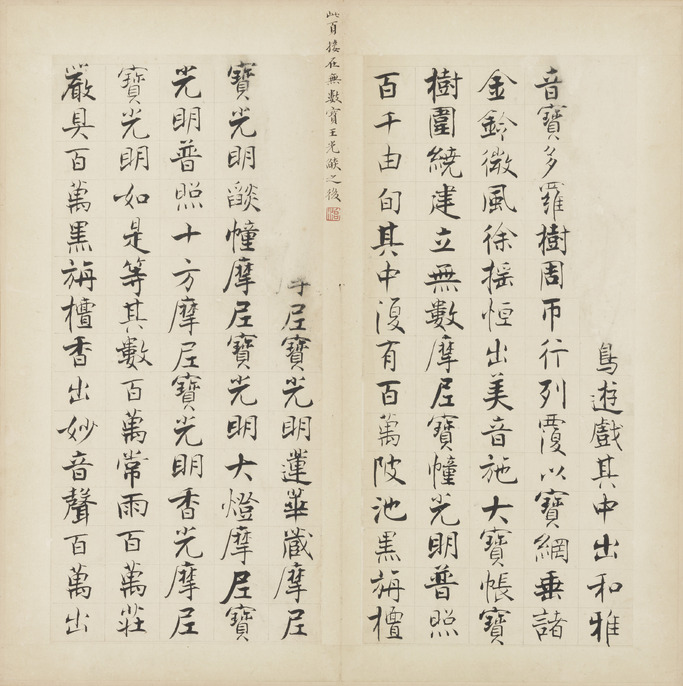 鳥遊戲其中出和雅
音寶多羅樹周帀行列覆以寶網垂諸
金鈴微風徐搖恒出美音施大寶帳寶
樹圍繞建立無數摩尼寶幢光明普照
百千由旬其中復有百萬陂池黑旃檀
此頁接在無數寶王光燄之後
尼寶光明蓮華藏摩尼
寶光明燄幢摩尼寶光明大燈摩尼寶
光明普照十方摩尼寶光明香光摩尼
寶光明如是等其數百萬常雨百萬莊
嚴具百萬黑旃檀香出妙音聲百萬出